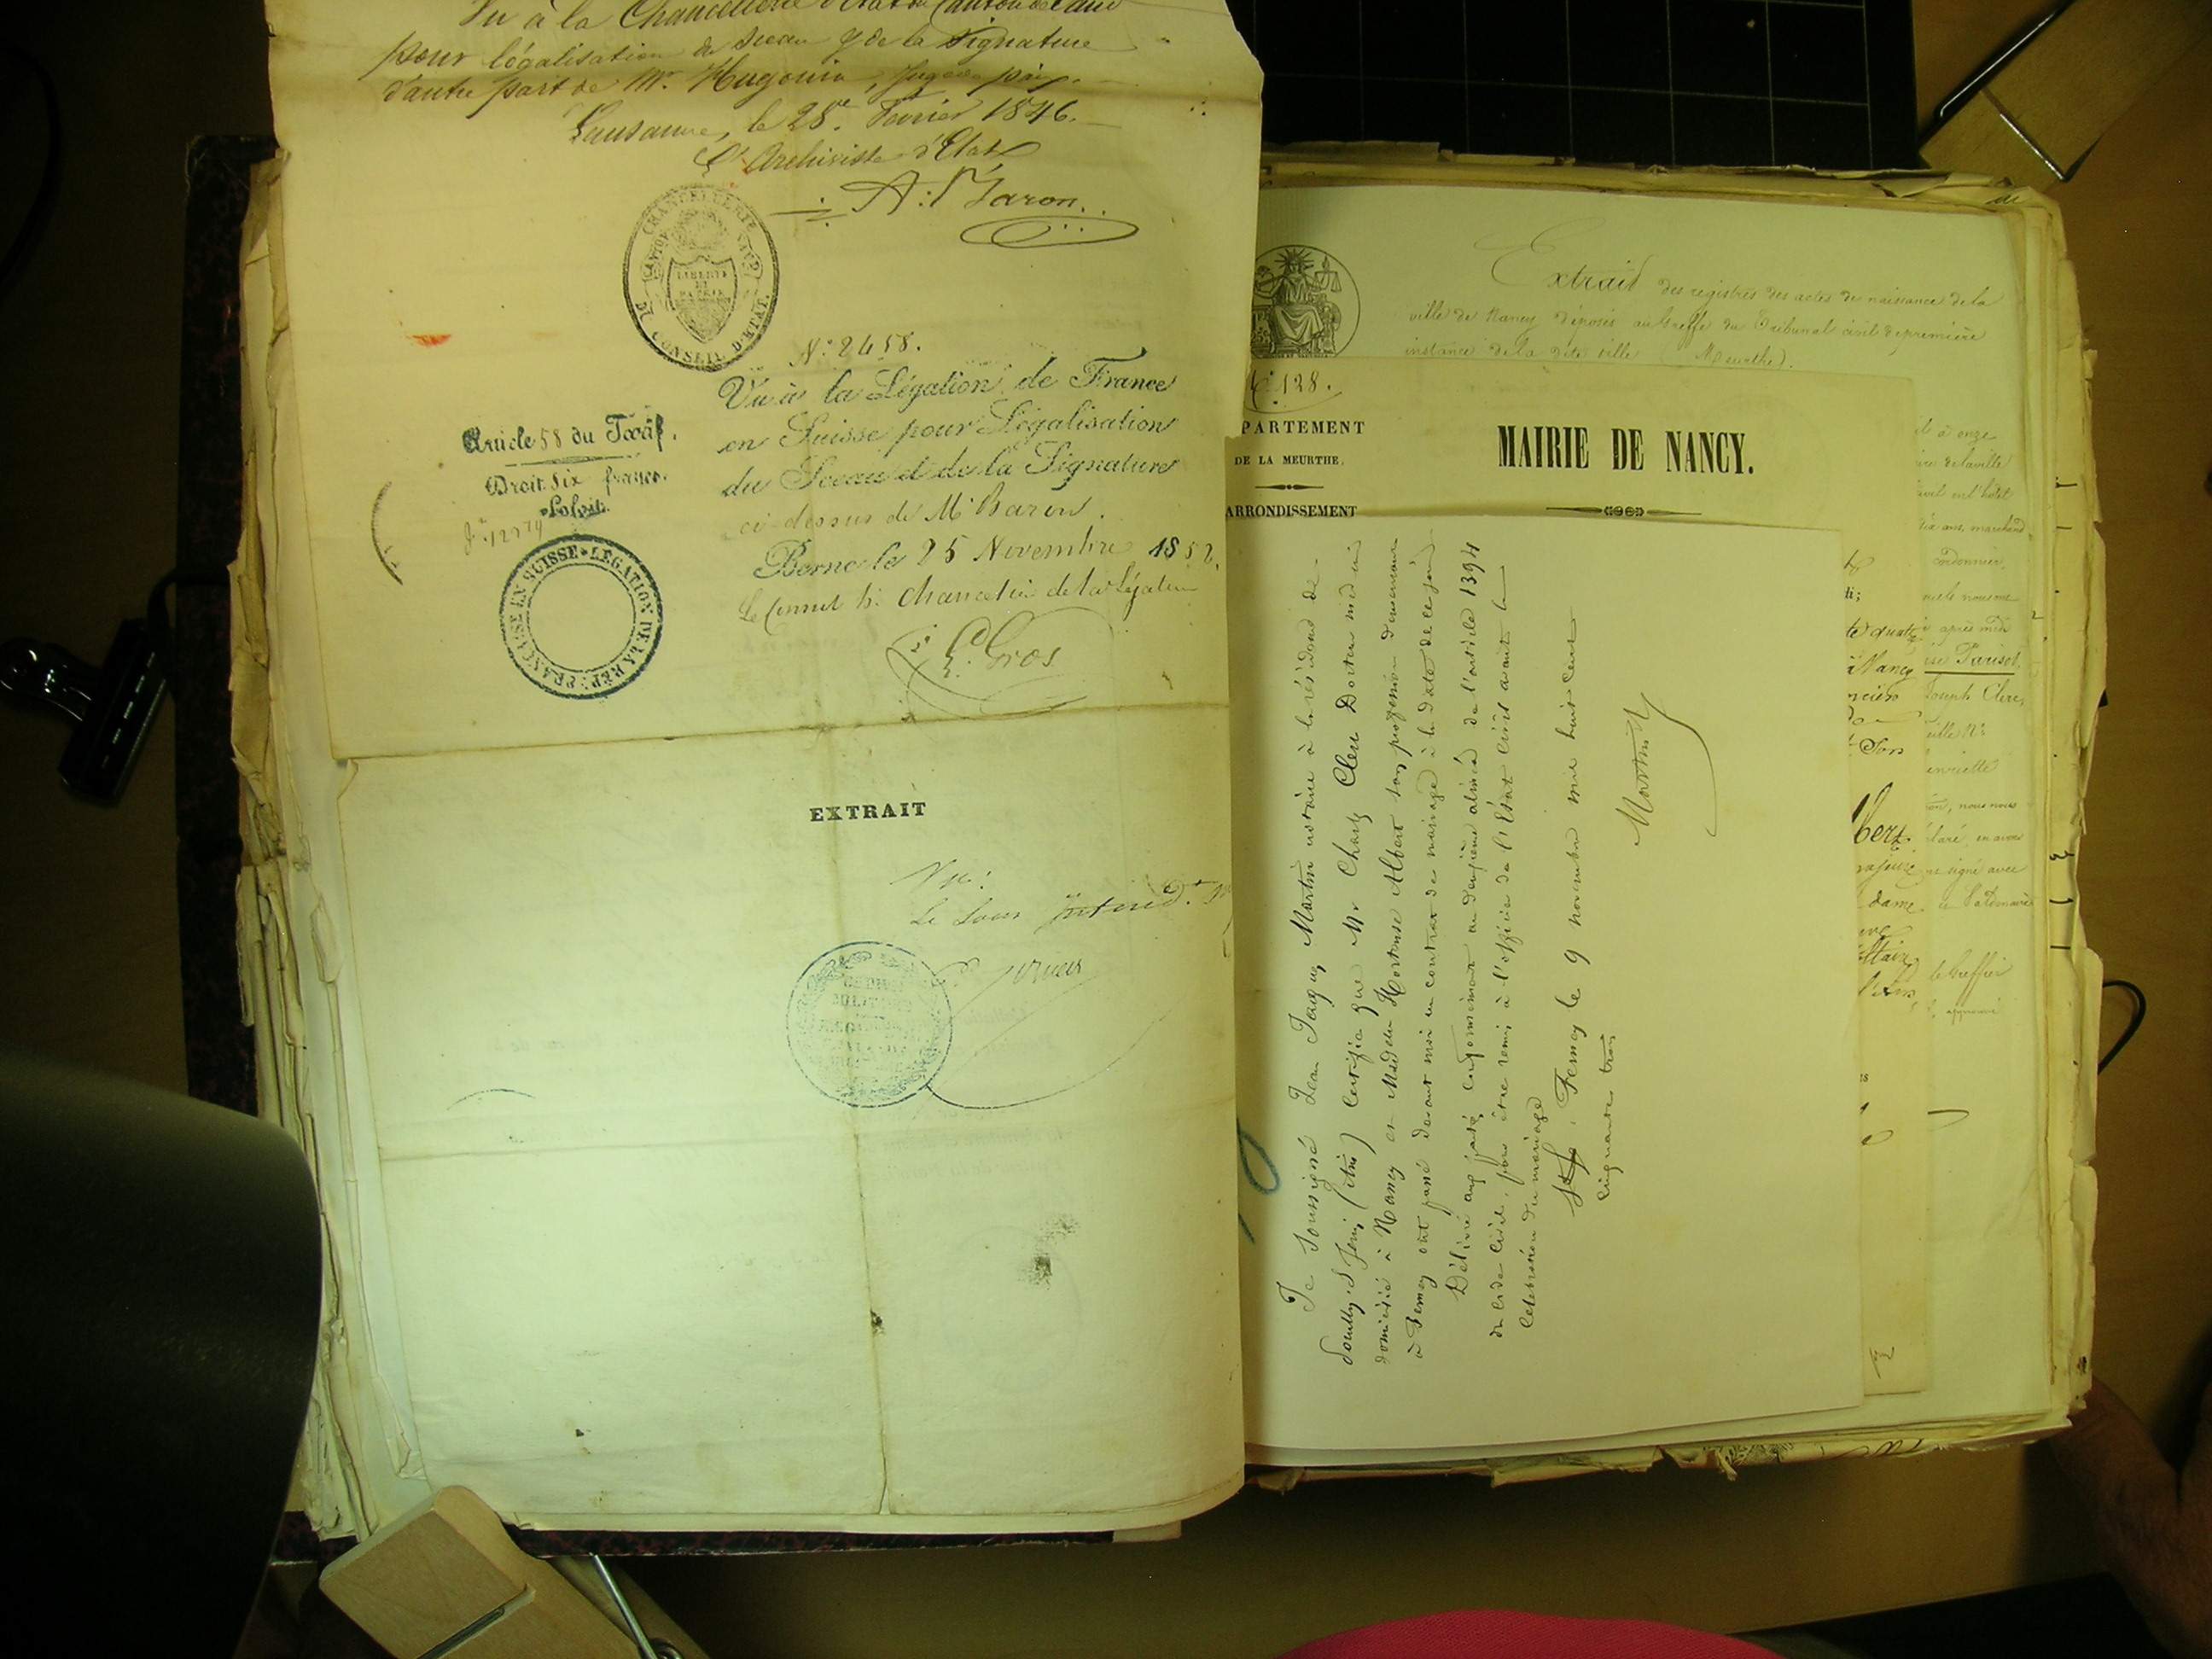 Vu à la Chancellerie d'Etat du Canton de Vaud
pour légalisation du sceau & de la signature
d'autre part de Mr. Hugonin, Juge de paix.
Lausanne, le 28e. Février 1846.
L'Archiviste d'Etat
A: Baron.
CHANCELLERIE
CANTON VAUD
LIBERTÉ
ET
PATRIE
DU CONSEIL D'ETAT.
N° 2458.
Vu à la Légation de France
en Suisse pour Légalisation
du Sceau et de la Signature
ci-dessus de Mr Baron.
Berne le 25 Novembre 1852.
le Consul hre Chancelier de la Légation
Gros
Article 58 du Tarif.
Droit six francs.
LÉGATION DE LA RÉP. FRANÇAISE EN SUISSE
EXTRAIT
Vu:
Le Sous
Extrait des registres des actes de naissance de la
ville de Nancy déposés au Greffe du Tribunal civil de première
instance de la dite ville (Meurthe).
N° 128.
PARTEMENT
DE LA MEURTHE,
ARRONDISSEMENT
MAIRIE DE NANCY.
Je soussigné Jean Jaques Martin notaire à la résidence de
(Ain) Certifie que Mr Charles Clerc Docteur médecin
domicilié à Nancy et Madame Hortense Albert sans profession demeurant
à Ferney ont passé devant moi un contrat de mariage à la date de ce jour
Délivré aux parties conformément au deuxième alinéa de l'article 1394
du Code Civil, pour être remis à l'officier de l'État Civil avant la
Célébration du mariage
Ferney le 9 novembre mil huit cent
Cinquante trois
Martin
à onze
de la ville
l'hôtel
ans, marchand
cordonnier,
après midi
Parisot
Joseph Clerc,
ville No
nous nous
signé avec
le Greffier
quatre
à Nancy
Son
dame